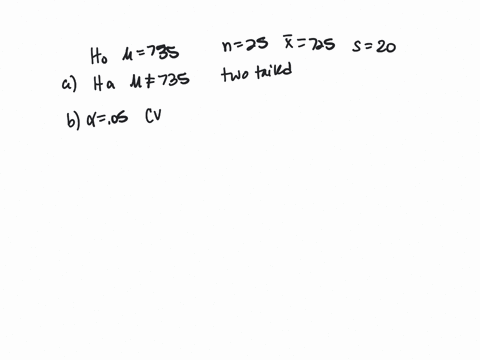 Ho μ = 735 n = 25 x̄ = 725 s = 20
a) Ha μ ≠ 735 two tailed
b) α = .05 CV